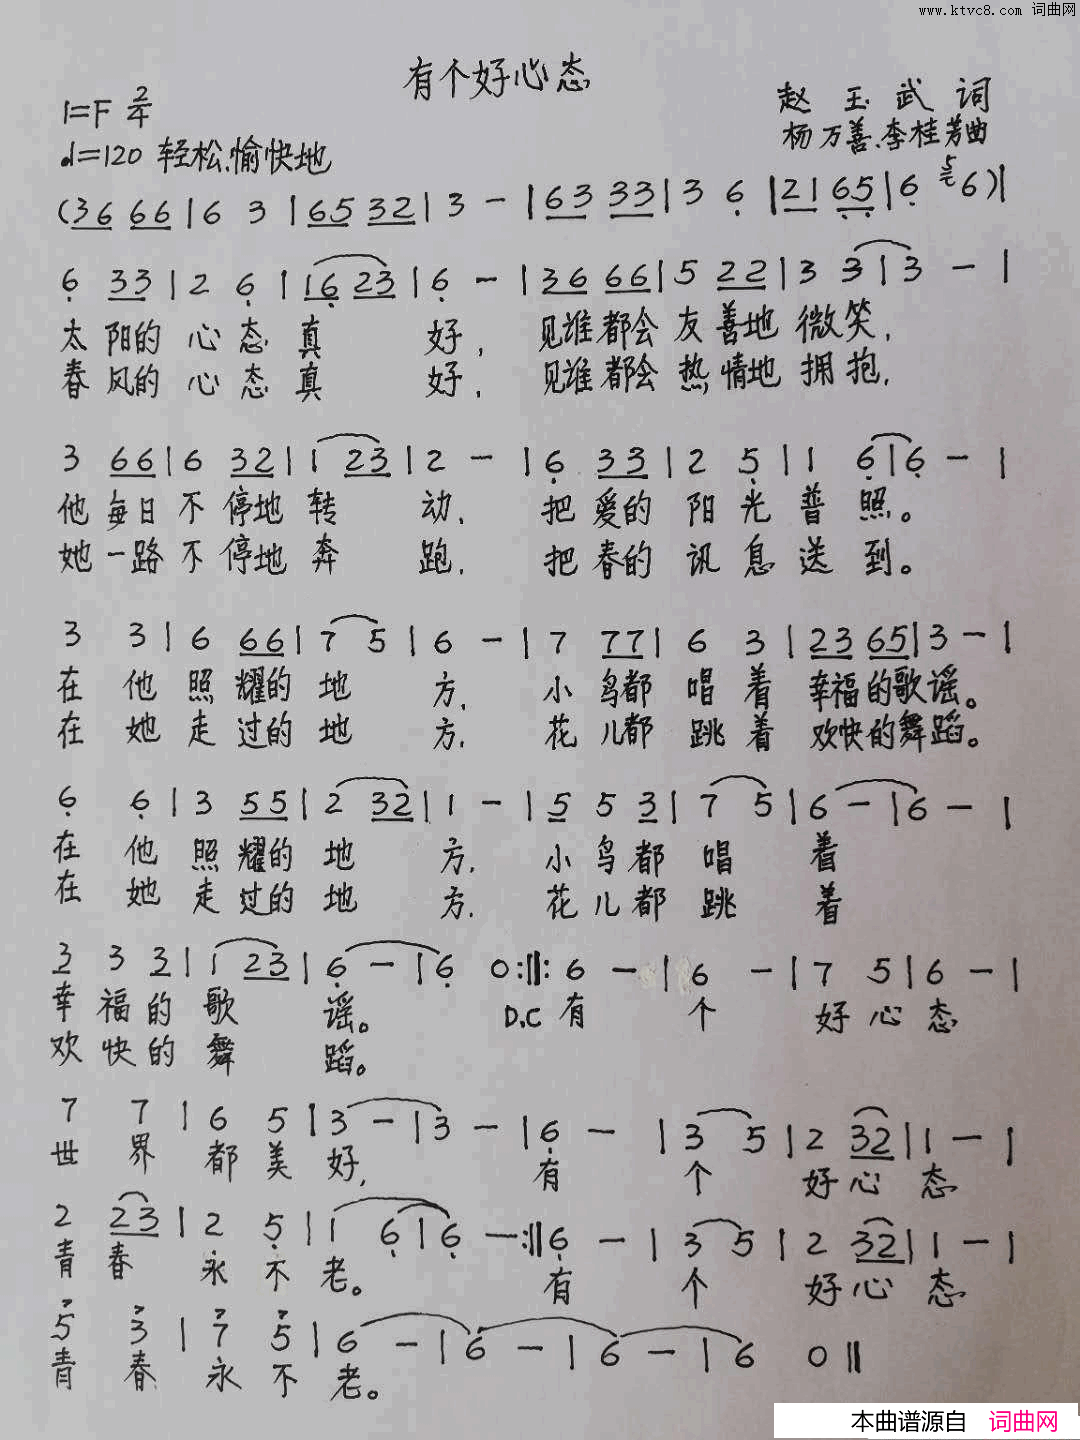 www.ktvc8.com 词曲网
有个好心态
1=F 2/4
赵玉武 词
♩=120 轻松、愉快地
杨万善、李桂芳曲
(36 66|6 3|65 32|3 -|63 33|3 6|21 65|6 56)|
6 33|2 6|16 23|6 -|36 66|5 22|3 3|3 -|
太阳的心态真好，见谁都会友善地微笑，
春风的心态真好，见谁都会热情地拥抱，
3 66|6 32|1 23|2 -|6 33|2 5|1 6|6 -|
他每日不停地转动，把爱的阳光普照。
她一路不停地奔跑，把春的讯息送到。
3 3|6 66|7 5|6 -|7 77|6 3|23 65|3 -|
在他照耀的地方，小鸟都唱着幸福的歌谣。
在她走过的地方，花儿都跳着欢快的舞蹈。
6 6|3 55|2 32|1 -|5 5 3|7 5|6 -|6 -|
在他照耀的地方，小鸟都唱着
在她走过的地方，花儿都跳着
3 3 3|1 23|6 -|6 0:||:6 -|6 -|7 5|6 -|
幸福的歌谣。 D.C 有个好心态
欢快的舞蹈。
7 7|6 5|3 -|3 -|6 -|3 5|2 32|1 -|
世界都美好，有个好心态
2 23|2 5|1 6|6 -:||6 -|3 5|2 32|1 -|
青春永不老。有个好心态
5 3|7 5|6 -|6 -|6 -|6 0||
青春永不老。
本曲谱源自 词曲网